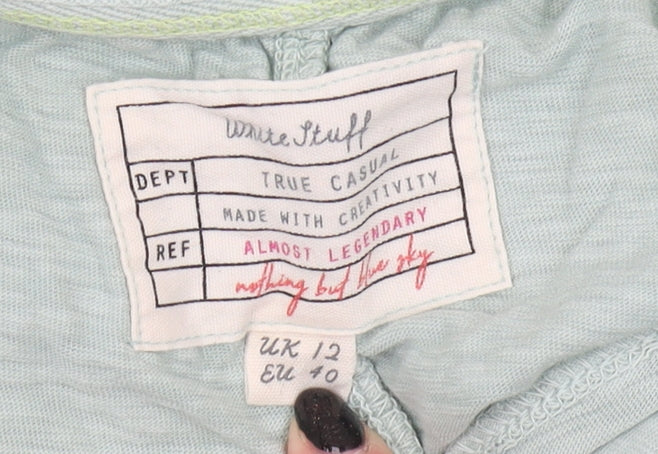 White Stuff
DEPT TRUE CASUAL
MADE WITH CREATIVITY
REF ALMOST LEGENDARY
nothing but blue sky
UK 12
EU 40